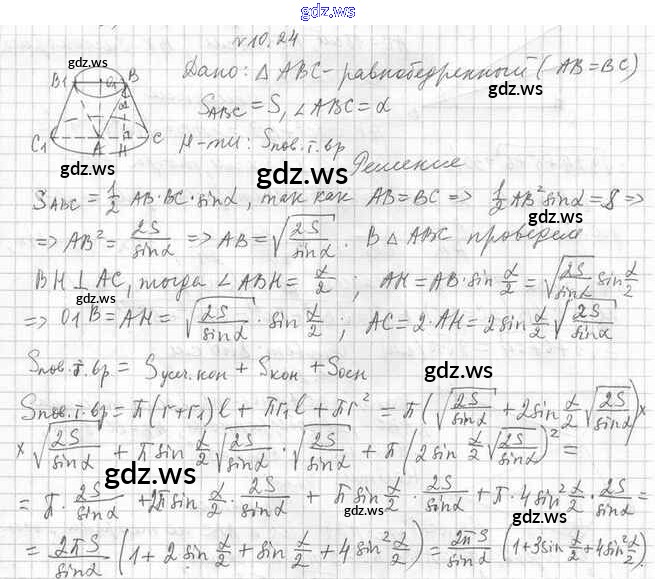 gdz.ws
№10.24
gdz.ws
Дано: △ ABC - равнобедренный (AB=BC)
gdz.ws
S_ABC = S, ∠ABC = α
B1 O1 B
C1 A H C
н-ти: Sпов.т.вр
gdz.ws
gdz.ws
Решение
S_ABC = 1/2 AB·BC·sinα, так как AB=BC => 1/2 AB² sinα = S =>
gdz.ws
=> AB² = 2S/sinα => AB = √(2S/sinα). В △ ABC проведем
BH ⊥ AC, тогда ∠ABH = α/2 ; AH = AB·sin α/2 = √(2S/sinα) sin α/2
gdz.ws
=> O1B = AH = √(2S/sinα) · sin α/2 ; AC = 2·AH = 2sin α/2 √(2S/sinα)
Sпов.т.вр = Sусеч.кон + Sкон + Sосн
gdz.ws
Sпов.т.вр = π(r+r1)l + πr1l + πr² = π(√(2S/sinα) + 2sin α/2 √(2S/sinα))×
× √(2S/sinα) + π sin α/2 √(2S/sinα) · √(2S/sinα) + π(2sin α/2 √(2S/sinα))² =
gdz.ws
= π · 2S/sinα + 2π sin α/2 · 2S/sinα + π sin α/2 · 2S/sinα + π·4sin² α/2 · 2S/sinα =
gdz.ws
gdz.ws
= 2πS/sinα (1 + 2sin α/2 + sin α/2 + 4sin² α/2) = 2πS/sinα (1+3sin α/2 + 4sin² α/2).